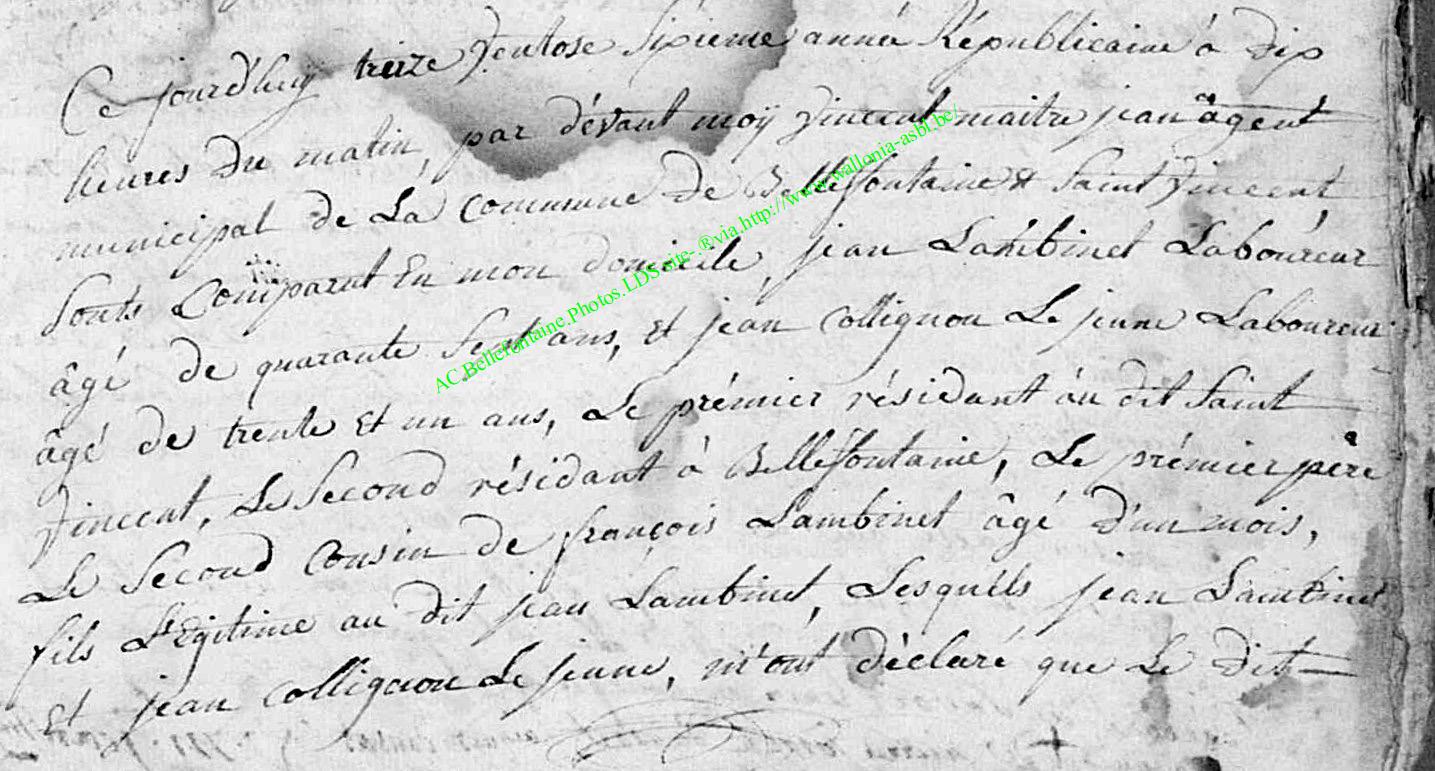 Ce jourd'huÿ treize Ventose Sixieme année Républicaine à dix
heures du matin, par dévant moÿ Vincent maitre jean agent
municipal de La Commune de Bellefontaine & Saint Vincent
Sonts Comparut En mon domicile, jean Lambinet Laboureur
âgé de quarante Sept ans, Et jean Collignon Le jeune Laboureur
âgé de trente Et un ans, Le prémier résidant au dit Saint
Vincent, Le Second résidant à Bellefontaine, Le prémier père
Le Second Cousin de françois Lambinet âgé d'un mois,
fils L'Egitime au dit jean Lambinet, Lesquels jean Lambinet
Et jean Collignon Le jeune, m'ont déclaré que Le dit
AC.Bellefontaine.Photos.LDS.site-.®via.http://www.wallonia-asbl.be/